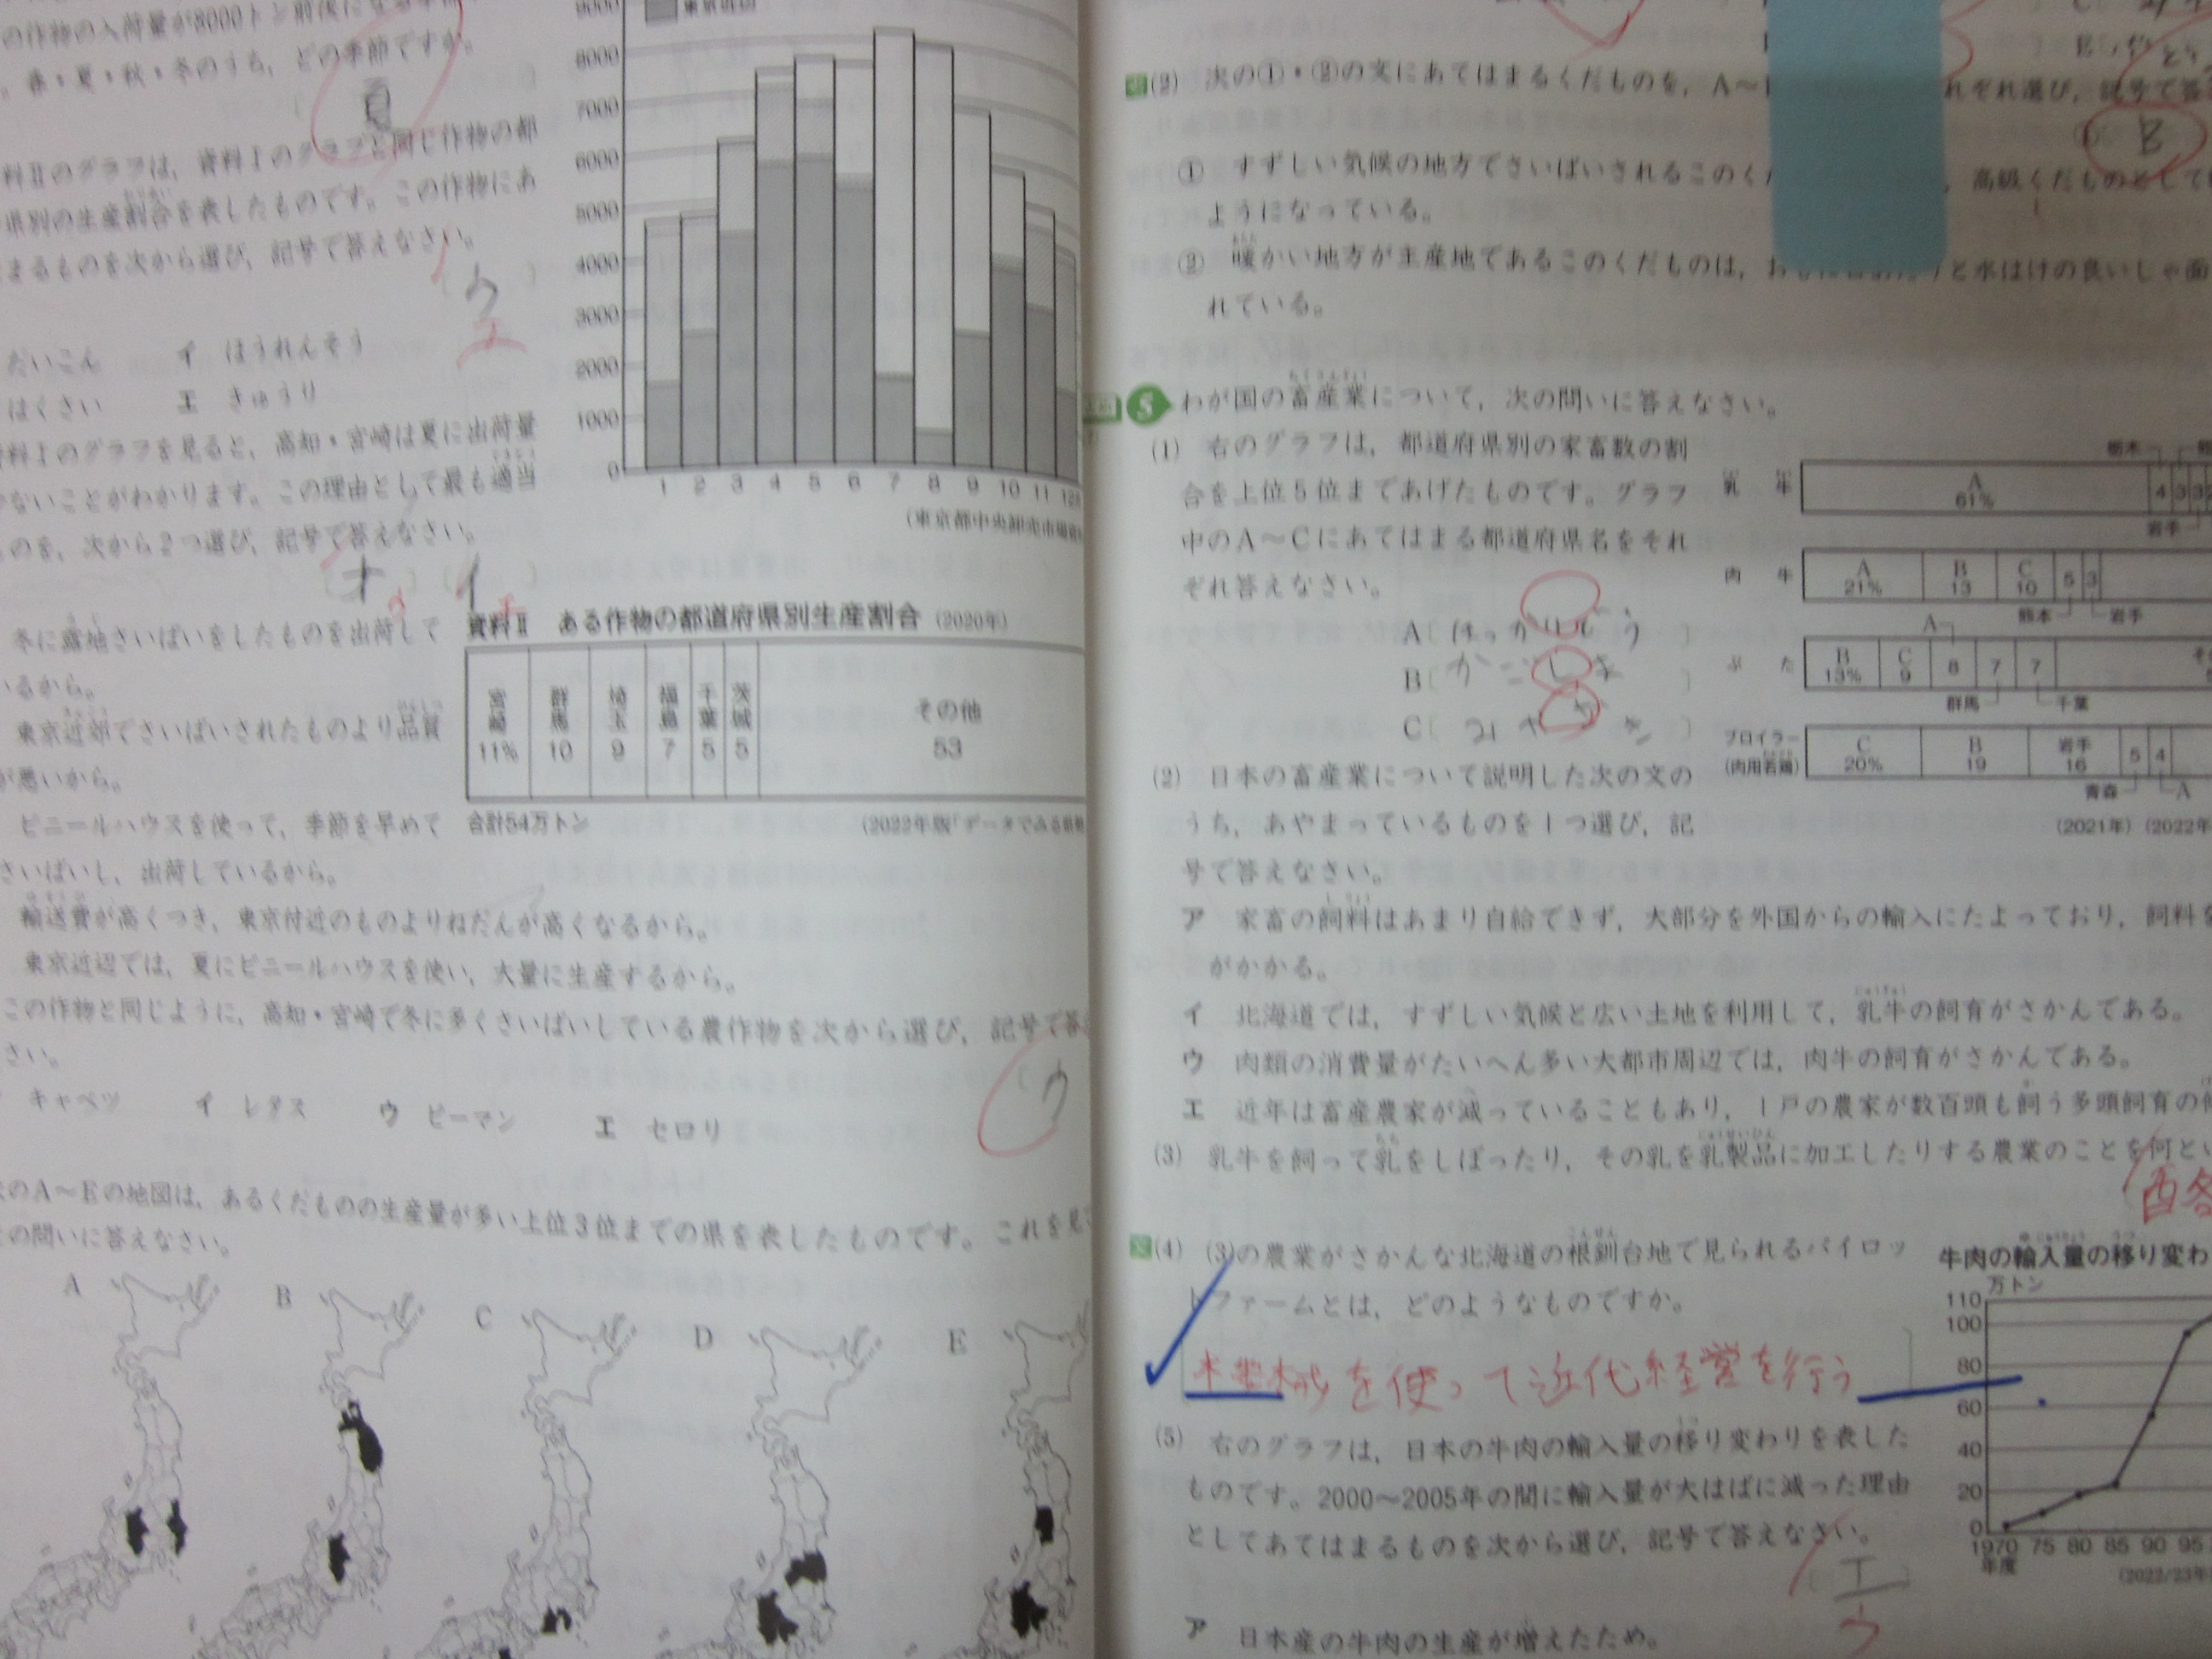 の作物の入荷量が8000トン前後になる季節
春・夏・秋・冬のうち，どの季節ですか。
夏
料Ⅱのグラフは，資料Ⅰのグラフと同じ作物の都
県別の生産割合を表したものです。この作物にあ
まるものを次から選び，記号で答えなさい。
ウ
エ
だいこん　イ　ほうれんそう
はくさい　エ　きゅうり
料Ⅰのグラフを見ると，高知・宮崎は夏に出荷量
ないことがわかります。この理由として最も適当
のを，次から2つ選び，記号で答えなさい。
オ　イ
冬に露地さいばいをしたものを出荷して
いるから。
東京近郊でさいばいされたものより品質
が悪いから。
ビニールハウスを使って，季節を早めて
さいばいし，出荷しているから。
輸送費が高くつき，東京付近のものよりねだんが高くなるから。
東京近辺では，夏にビニールハウスを使い，大量に生産するから。
この作物と同じように，高知・宮崎で冬に多くさいばいしている農作物を次から選び，記号で答
さい。
ウ
キャベツ　イ　レタス　ウ　ピーマン　エ　セロリ
のA〜Eの地図は，あるくだものの生産量が多い上位3位までの県を表したものです。これを見
の問いに答えなさい。
A　B　C　D　E
9000
東京近郊
8000
7000
6000
5000
4000
3000
2000
1000
0
1 2 3 4 5 6 7 8 9 10 11 12
（東京都中央卸売市場
資料Ⅱ　ある作物の都道府県別生産割合（2020年）
宮崎 11%　群馬 10　埼玉 9　福島 7　千葉 5　茨城 5　その他 53
合計54万トン
（2022年版「データでみる県勢
(2)　次の①・②の文にあてはまるくだものを，A〜
れぞれ選び，記号で答
B
①　すずしい気候の地方でさいばいされるこのく
，高級くだものとして
ようになっている。
②　暖かい地方が主産地であるこのくだものは，お
と水はけの良いしゃ面
れている。
5　わが国の畜産業について，次の問いに答えなさい。
(1)　右のグラフは，都道府県別の家畜数の割
合を上位5位まであげたものです。グラフ
中のA〜Cにあてはまる都道府県名をそれ
ぞれ答えなさい。
A〔ほっかいどう〕
B〔かごしま〕
C〔みやざき
栃木
乳牛　A 61%　4　3　3
岩手
肉牛　A 21%　B 13　C 10　5　3
熊本　岩手
A
ぶた　B 13%　C 9　8　7　7
群馬　千葉
ブロイラー（肉用若鶏）　C 20%　B 19　岩手 16　5　4
青森　A
（2021年）（2022年
(2)　日本の畜産業について説明した次の文の
うち，あやまっているものを1つ選び，記
号で答えなさい。
ア　家畜の飼料はあまり自給できず，大部分を外国からの輸入にたよっており，飼料
がかかる。
イ　北海道では，すずしい気候と広い土地を利用して，乳牛の飼育がさかんである。
ウ　肉類の消費量がたいへん多い大都市周辺では，肉牛の飼育がさかんである。
エ　近年は畜産農家が減っていることもあり，1戸の農家が数百頭も飼う多頭飼育の
(3)　乳牛を飼って乳をしぼったり，その乳を乳製品に加工したりする農業のことを何とい
酪
(4)　(3)の農業がさかんな北海道の根釧台地で見られるパイロッ
トファームとは，どのようなものですか。
機械を使って近代経営を行う
(5)　右のグラフは，日本の牛肉の輸入量の移り変わりを表した
ものです。2000〜2005年の間に輸入量が大はばに減った理由
としてあてはまるものを次から選び，記号で答えなさい。
エ
ウ
ア　日本産の牛肉の生産が増えたため。
牛肉の輸入量の移り変わ
万トン
110
100
80
60
40
20
0
1970 75 80 85 90 95
年度
（2022/23年